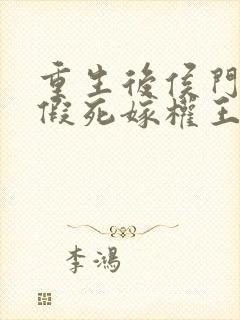 重生後侯門
假死嫁權王
李鴻